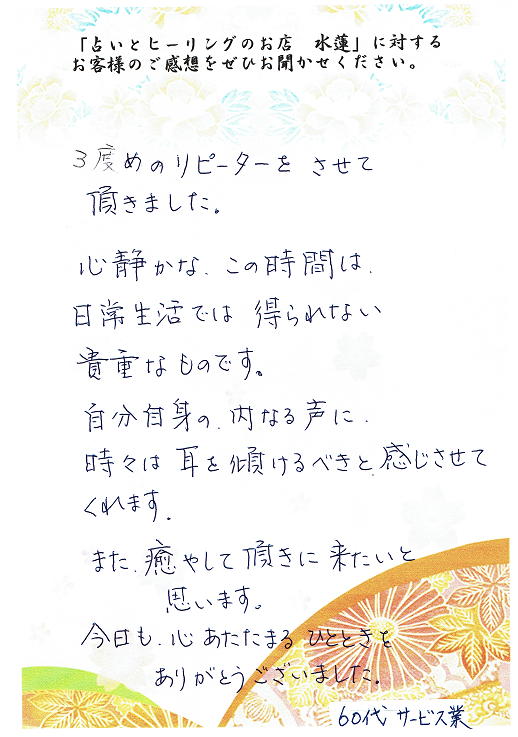 「占いとヒーリングのお店　水蓮」に対する
お客様のご感想をぜひお聞かせください。
3度めのリピーターを させて
頂きました。
心静かな、この時間は、
日常生活では 得られない
貴重なものです。
自分自身の、内なる声に、
時々は 耳を傾けるべきと、感じさせて
くれます。
また、癒やして頂きに 来たいと
思います。
今日も、心あたたまる ひとときを
ありがとうございました。
60代 サービス業